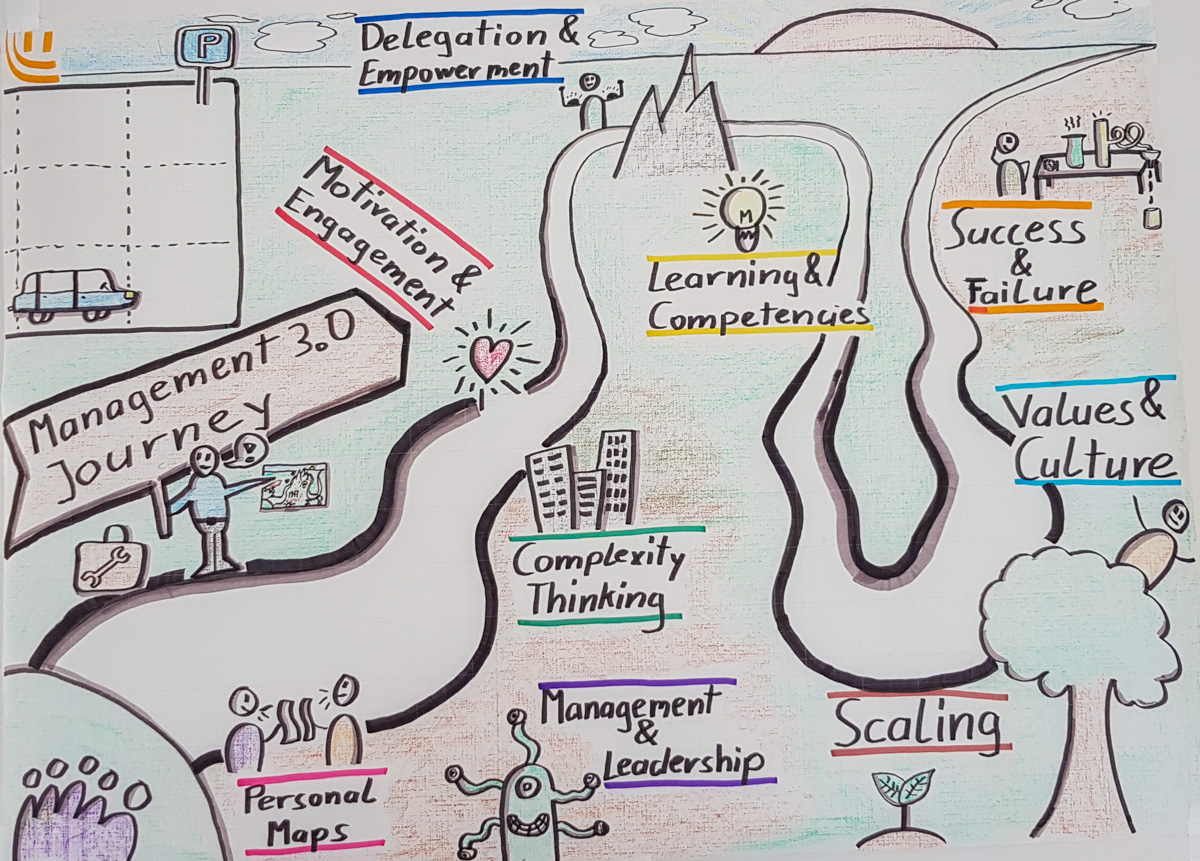 P
Delegation &
Empowerment
Motivation &
Engagement
M
Learning &
Competencies
Success
&
Failure
Management 3.0
Journey
Values &
Culture
Complexity
Thinking
Management
&
Leadership
Scaling
Personal
Maps